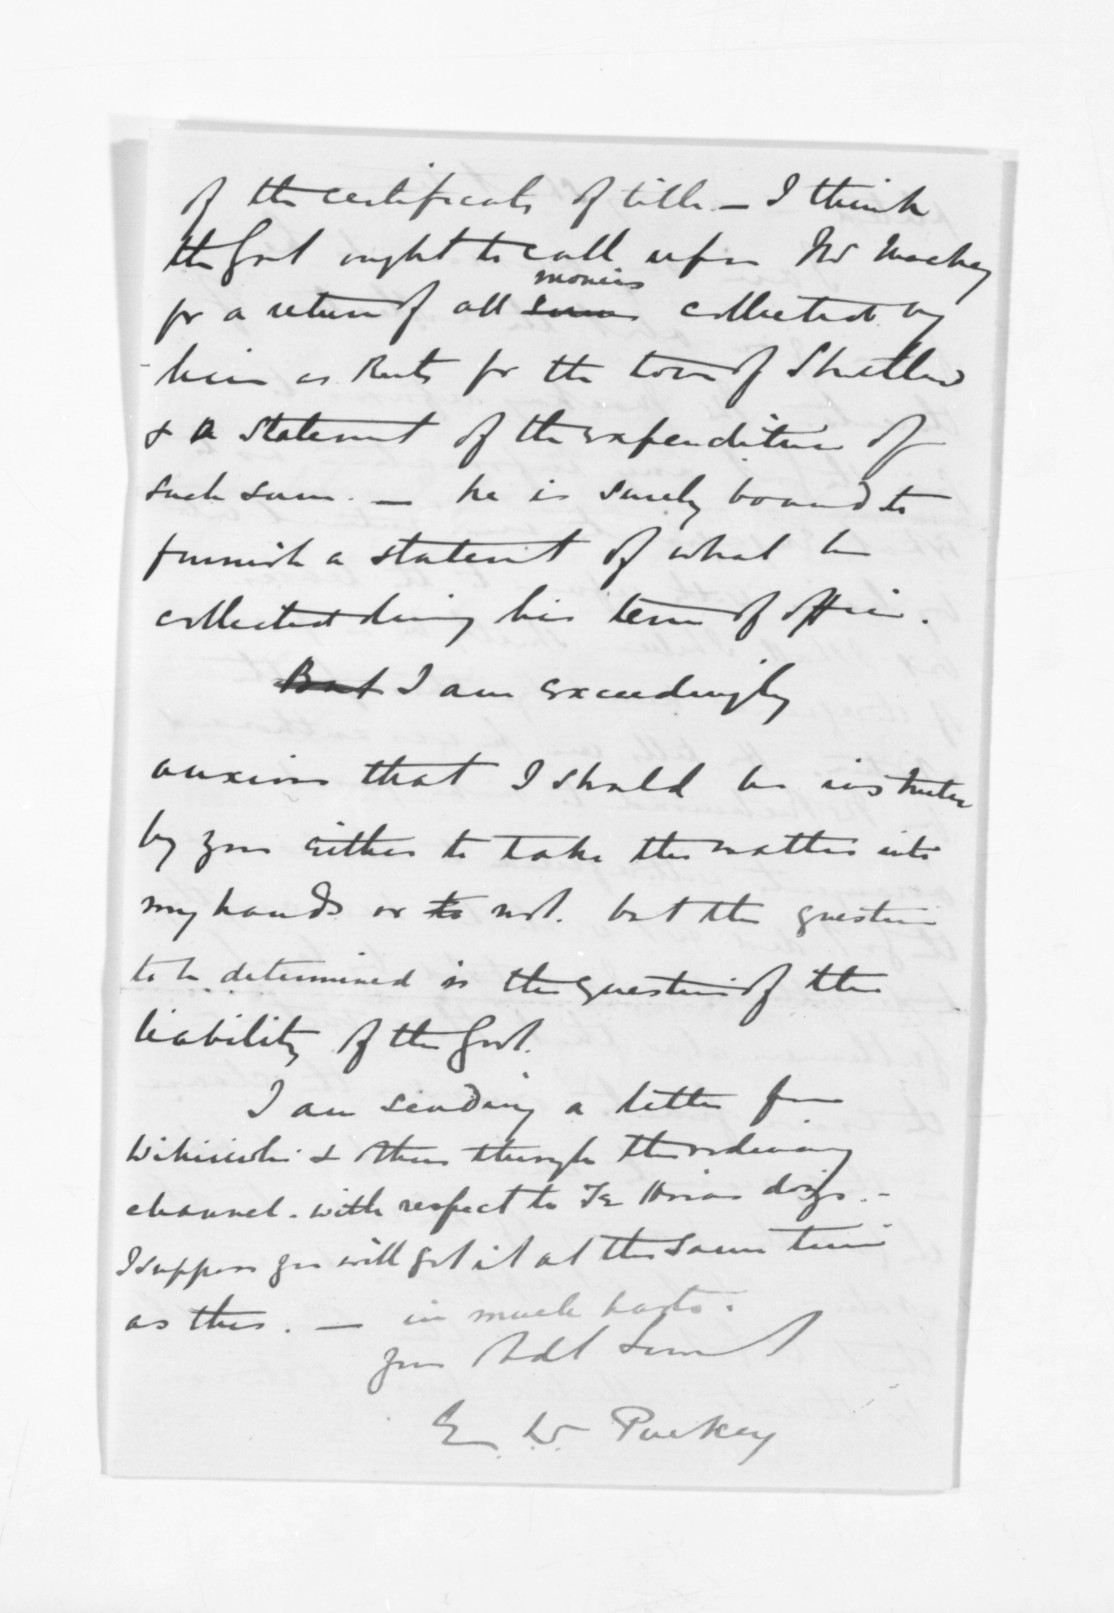 of the certificate of title — I think
the Govt ought to call upon Mr Mackay
for a return of all sums monies collected by
him as Rents for the town of Shortland
& a statement of the expenditure of
such sum. — he is surely bound to
furnish a statement of what he
collected during his term of office.
But I am exceedingly
anxious that I should be instructed
by you either to take the matter into
my hands or to not. but the question
to be determined is the question of the
liability of the Govt.
I am sending a letter from
& others through the ordinary
channel. with respect to Te doings. -
I suppose you will get it at the same time
as this. — in much haste.
your Obdt Servt
E. W. Puckey